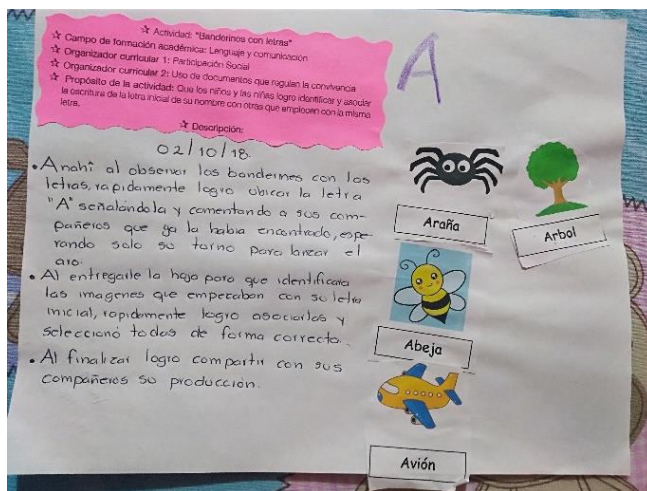 ☆ Actividad: "Banderines con letras"
☆ Campo de formación académica: Lenguaje y comunicación
☆ Organizador curricular 1: Participación Social
☆ Organizador curricular 2: Uso de documentos que regulan la convivencia
☆ Propósito de la actividad: Que los niños y las niñas logre identificar y asociar
la escritura de la letra inicial de su nombre con otras que empiecen con la misma
letra.
☆ Descripción:
02/10/18.
• Anahí al observar los banderines con las
letras, rapidamente logro ubicar la letra
"A" señalándola y comentando a sus com-
pañeros que ya la habia encontrado, espe-
rando solo su turno para lanzar el
aro.
• Al entregarle la hoja para que identificara
las imagenes que empezaban con su letra
inicial, rapidamente logro asociarlas y
selecciono todas de forma correcta.
• Al finalizar logro compartir con sus
compañeros su producción.
A
Araña
Arbol
Abeja
Avión